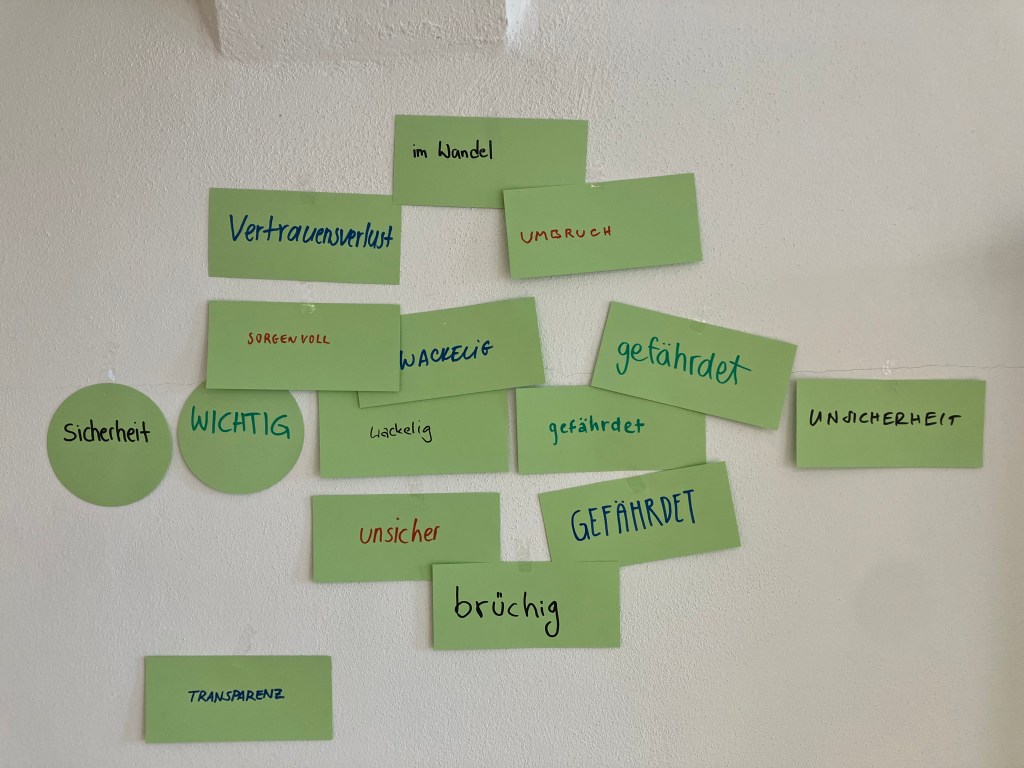 im Wandel
Vertrauensverlust
UMBRUCH
SORGENVOLL
WACKELIG
gefährdet
Sicherheit
WICHTIG
wackelig
gefährdet
UNSICHERHEIT
unsicher
GEFÄHRDET
brüchig
TRANSPARENZ